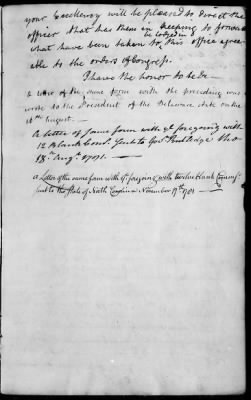 your Excellency will be pleased to direct the
officer that has them in keeping to forward
be lodged in
what have been taken to this office agree-
able to the orders of Congress.
I have the honor to be &c
A letter of the same form with the preceeding was
wrote to the President of the Delaware State on the
16th August.
A letter of same form with ye foregoing with
12 Blank Coms. sent to Govr Rutledge the
18th Augt. 1781.
a Letter of the same form with ye foregoing with twelve blank Comms
sent to the State of North Carolina November 19th 1781